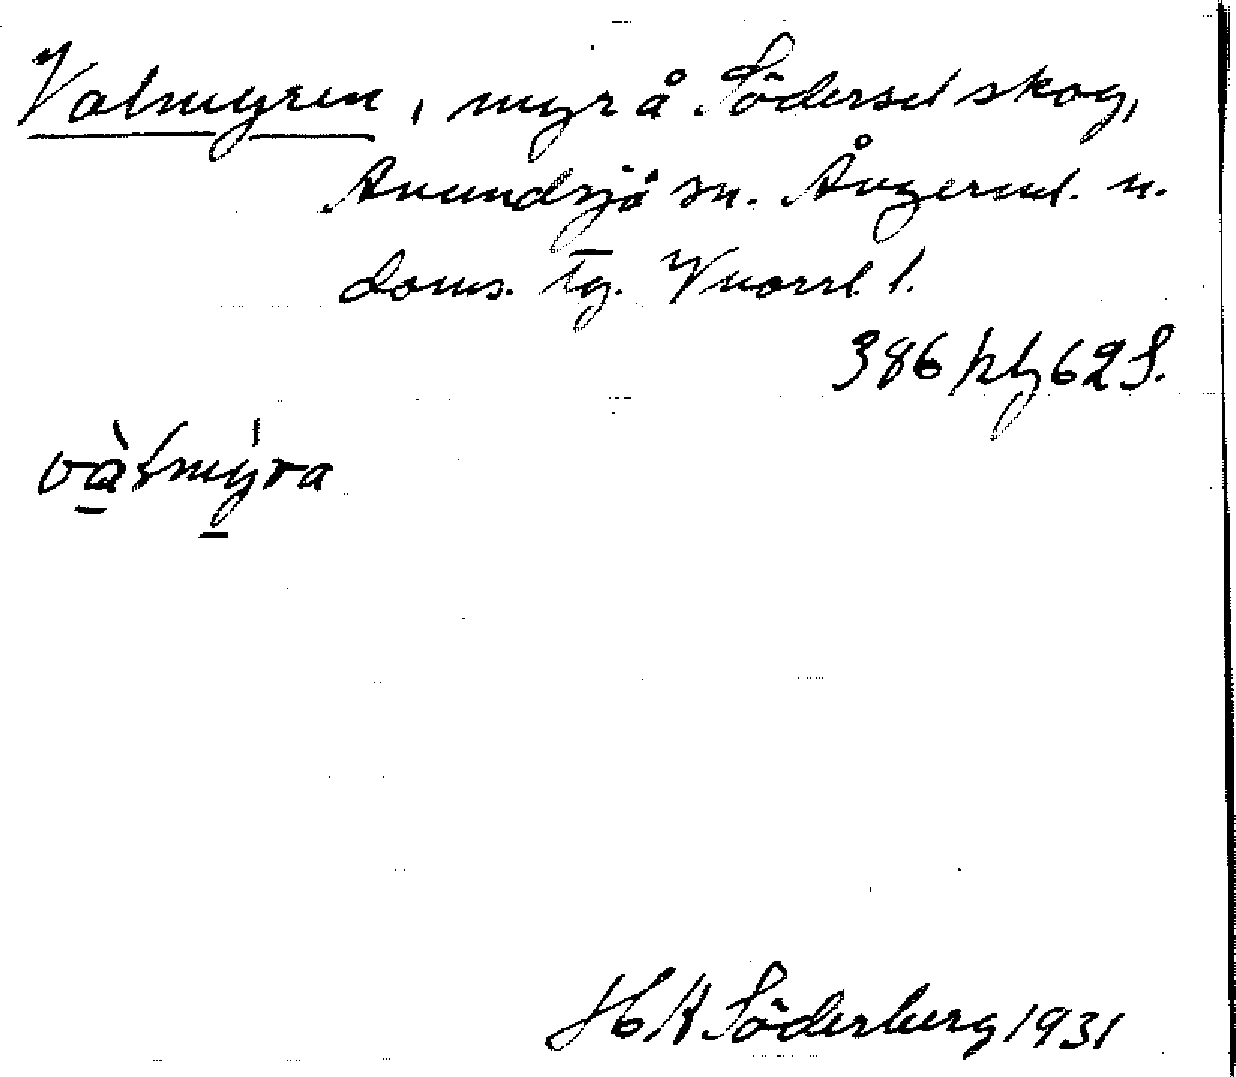 Vatmyren, myr å Södersel skog,
Anundsjö sn. Ångerml. n.
doms. tg. Vnorrl. l.
386 62 S.
vàtmýra
H A Söderberg 1931